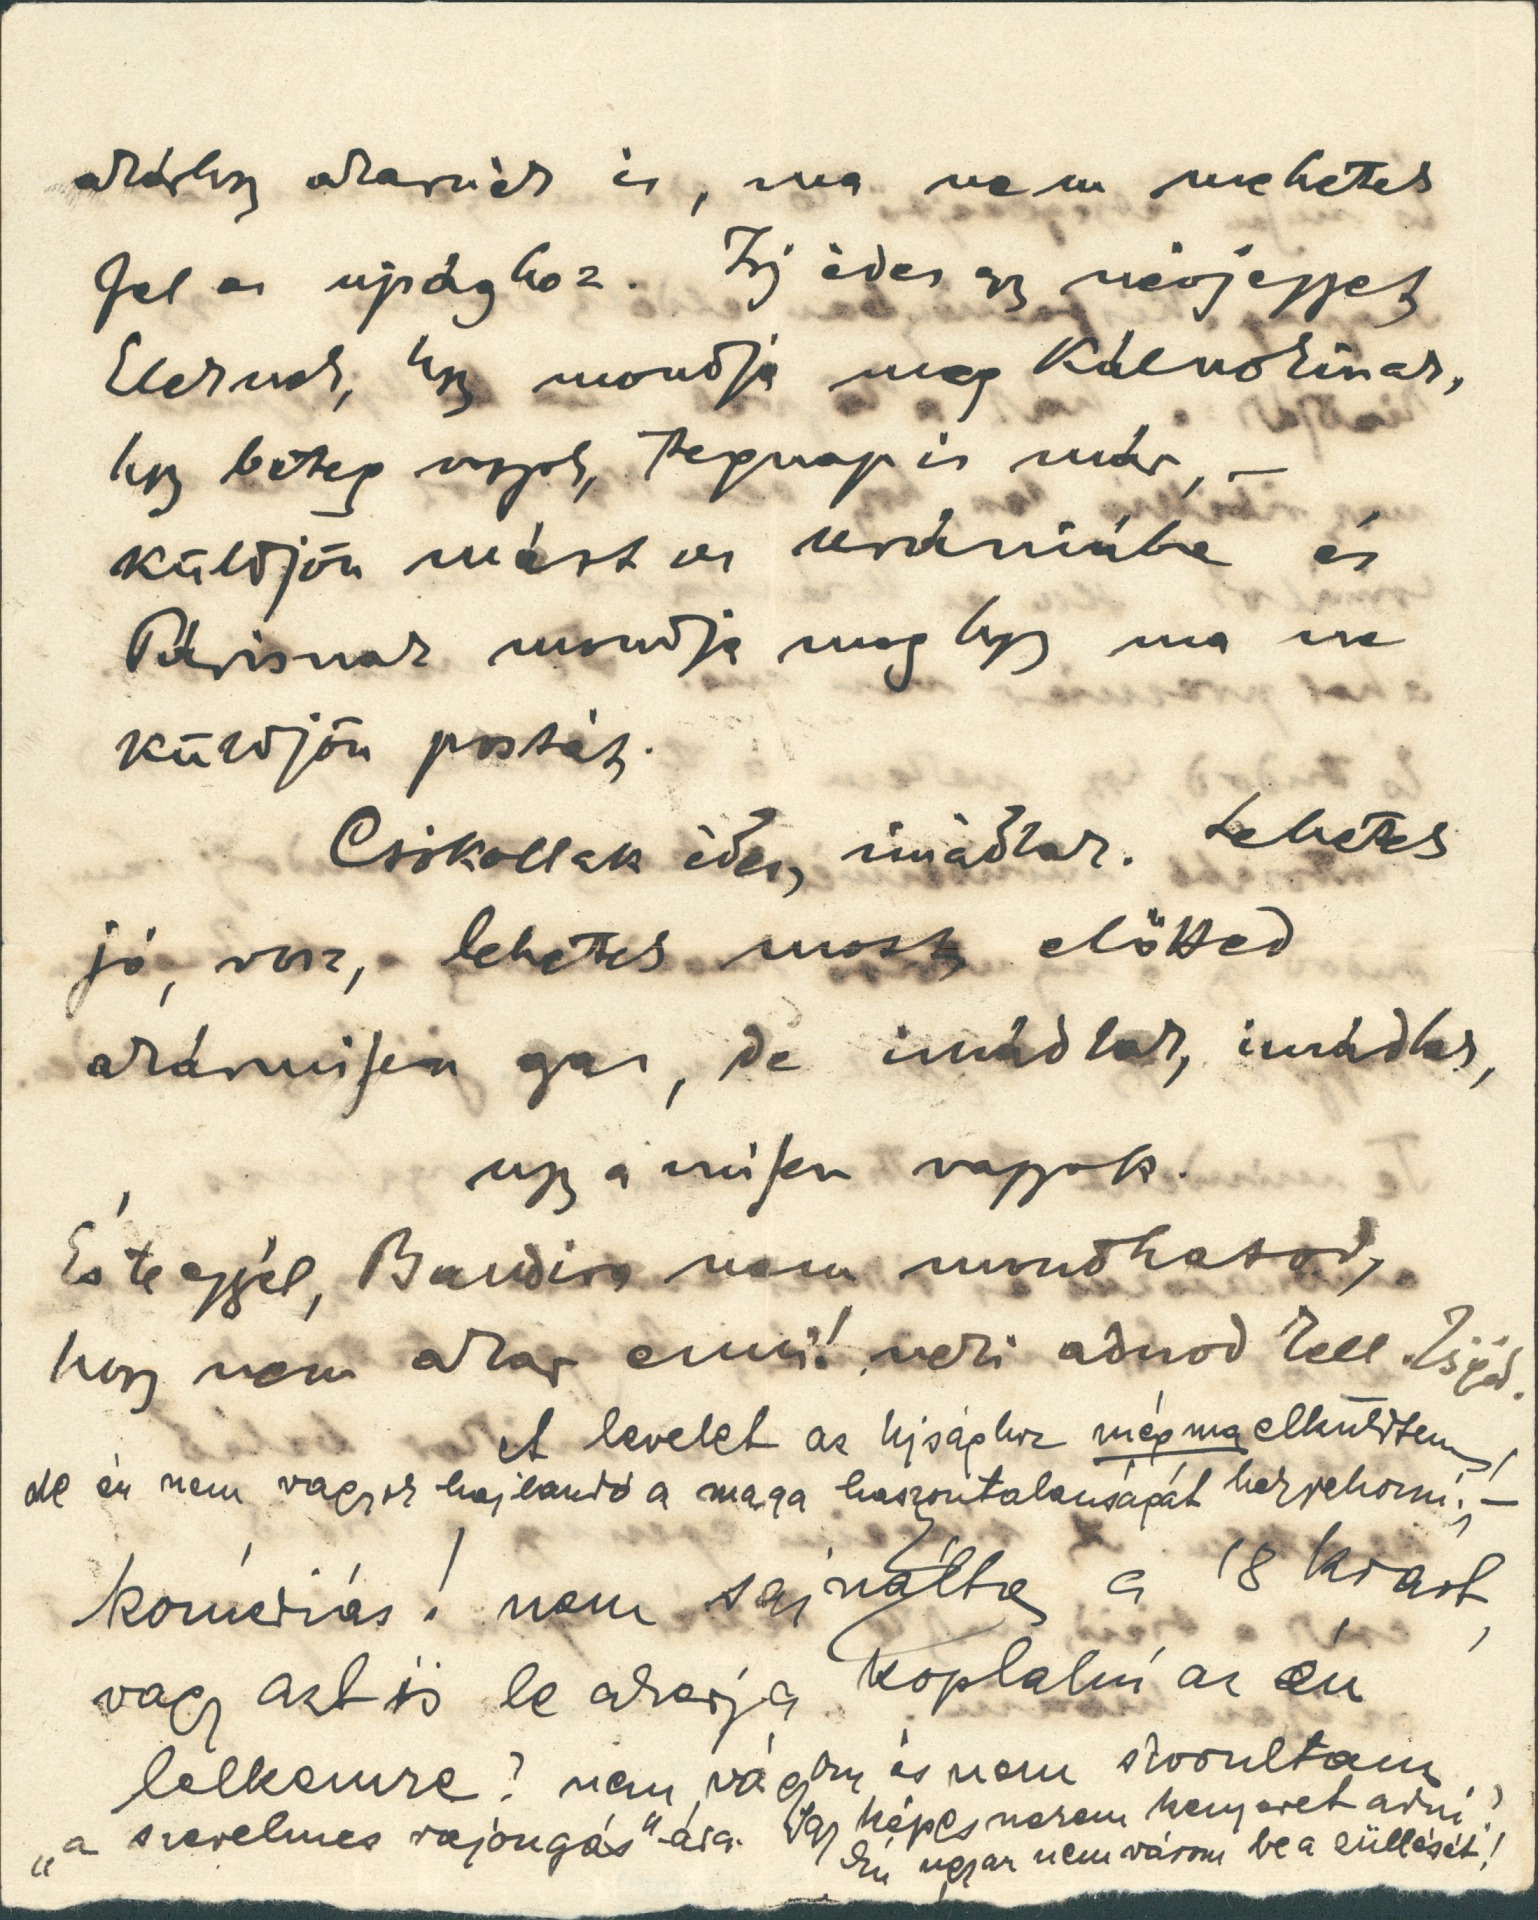 akárhogy akarnék is, ma nem mehetek
fel az ujsághoz. Irj édes egy névjegyet
Eleknek, hogy mondja meg Kálnokinak,
hogy beteg vagyok, tegnap is már, –
küldjön mást az Urániába és
Párisnak mondja meg hogy ma ne
küldjön postát.
Csókollak édes, imádlak. Lehetek
jó, rosz, lehetek most előtted
akármilyen gaz, de imádlak, imádlak,
ugy a milyen vagyok.
És te egyél, Bandira nem mondhatod,
hogy nem akar enni! neki adnod kell
A levelet az Ujsághoz még ma elküldtem!
de én nem vagyok hajlandó a maga haszontalanságát helyrehozni; –
komédiás! nem sajnálta a 18 krart,
vagy azt is le akarja koplalni az én
lelkemre? nem vágyom és nem szorultam
„a szerelmes rajongás"-ára. Igy képes nekem kenyeret adni?
Én ugyan nem várom be a züllését!